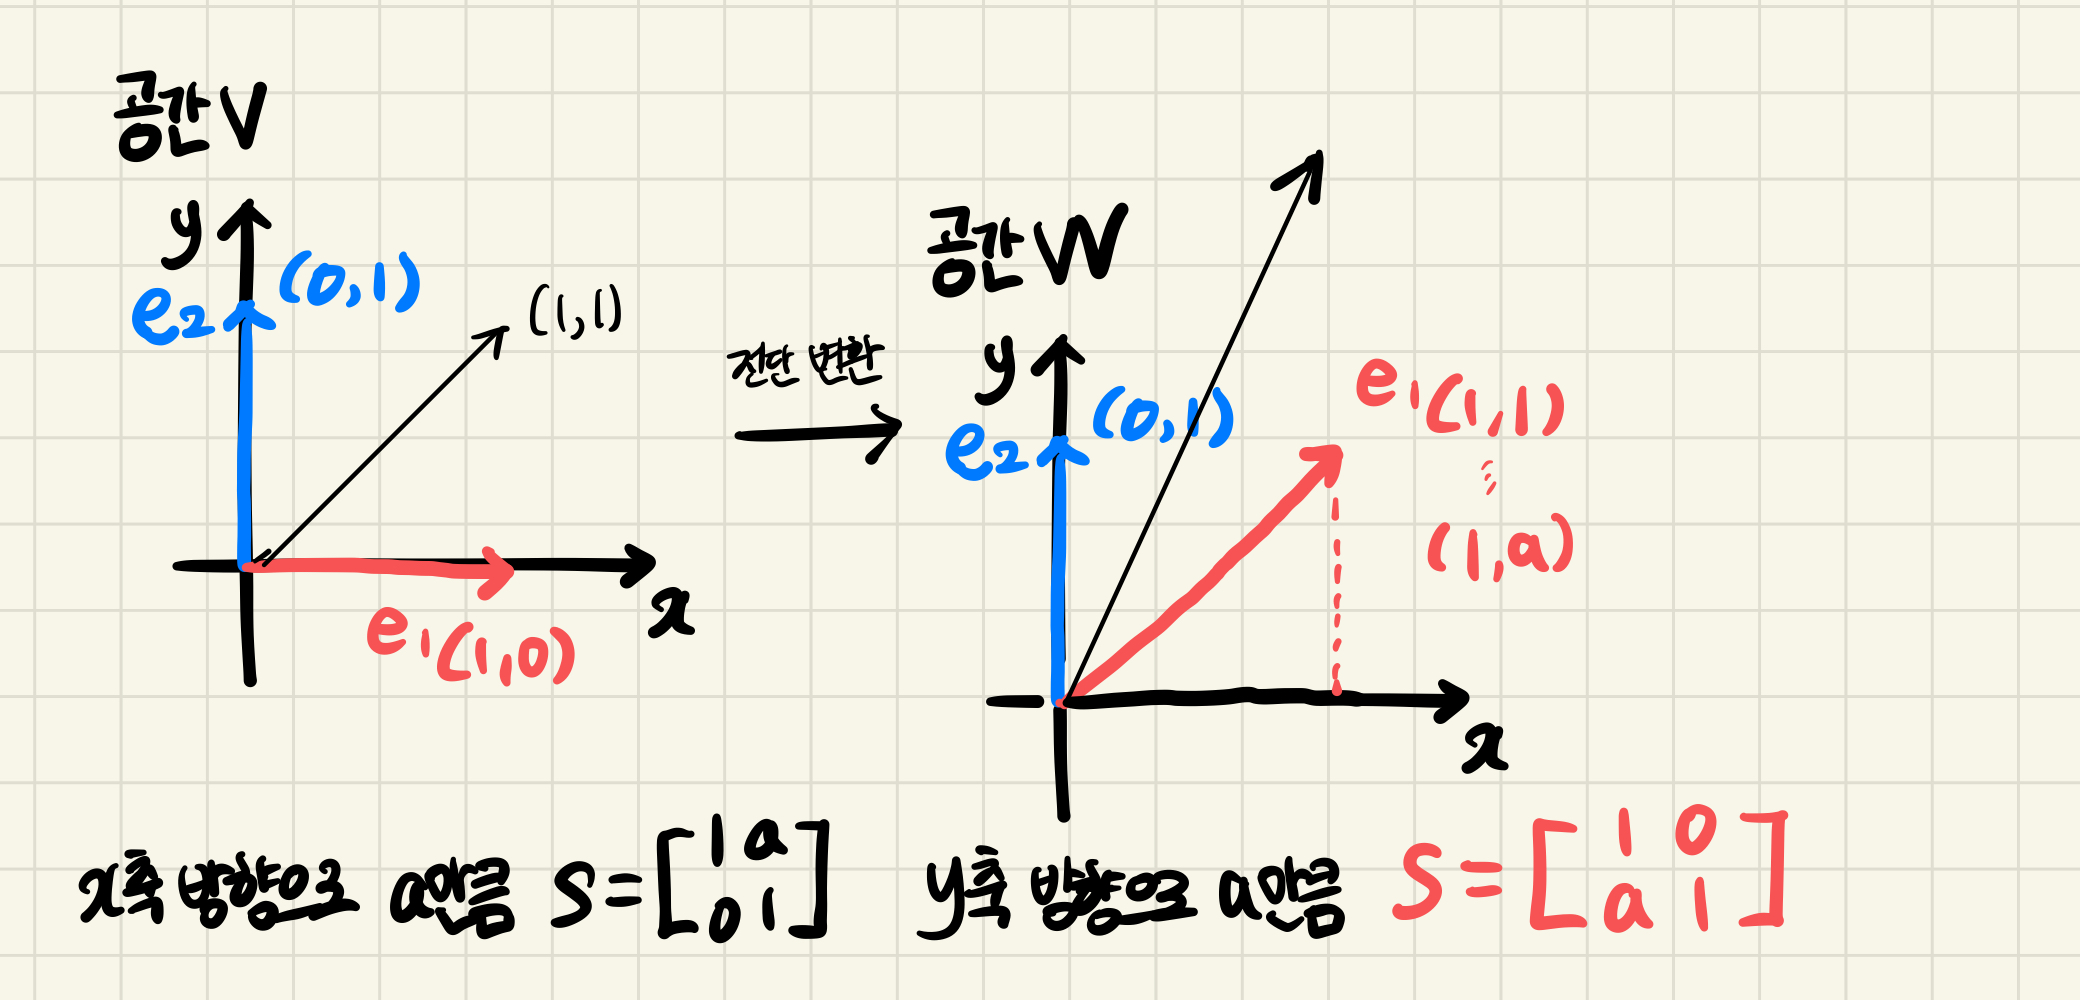 공간 V
y
e2 (0,1)
(1,1)
x
e1 (1,0)
전단 변환
공간 W
y
e2 (0,1)
e1 (1,1)
(1,a)
x
x축 방향으로 a만큼 S = [1 a
0 1]
y축 방향으로 a만큼 S = [1 0
a 1]